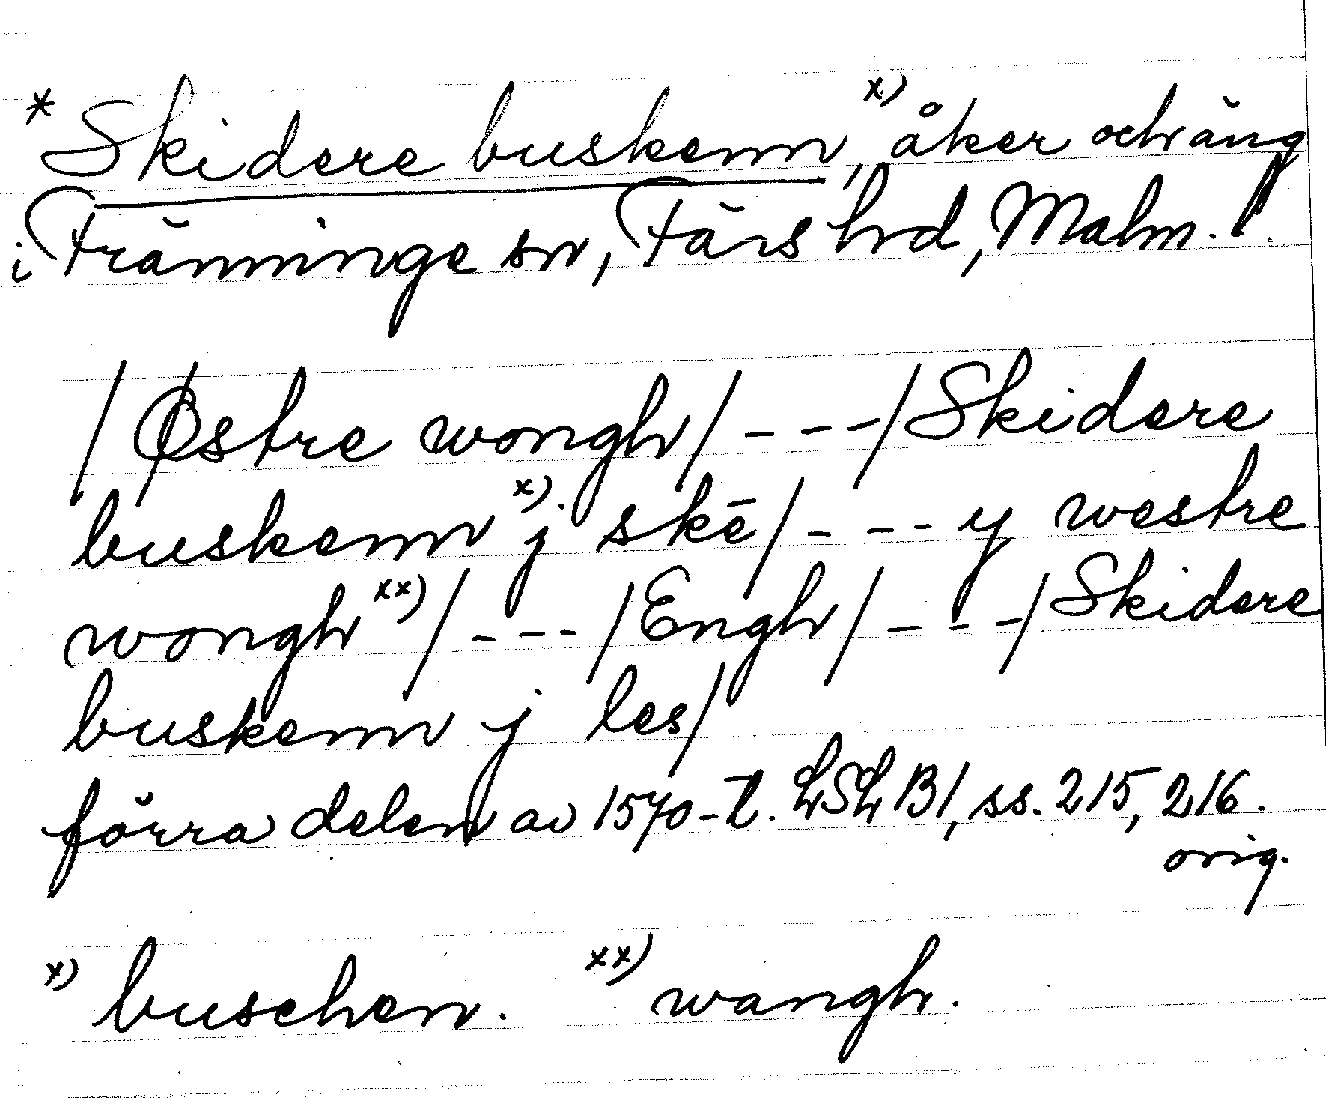 * Skidere buskenn x), åker och äng
i Tränninge sn, Färs hd, Malm. l.
/ Østre wongh / - - - / Skidere
buskenn x) j skē / - - - y westre
wongh xx) / - - - / Engh / - - - / Skidere
buskenn j les /
förra delen av 1570-t. LSL B1, ss. 215, 216.
orig.
x) buschen. xx) wangh.